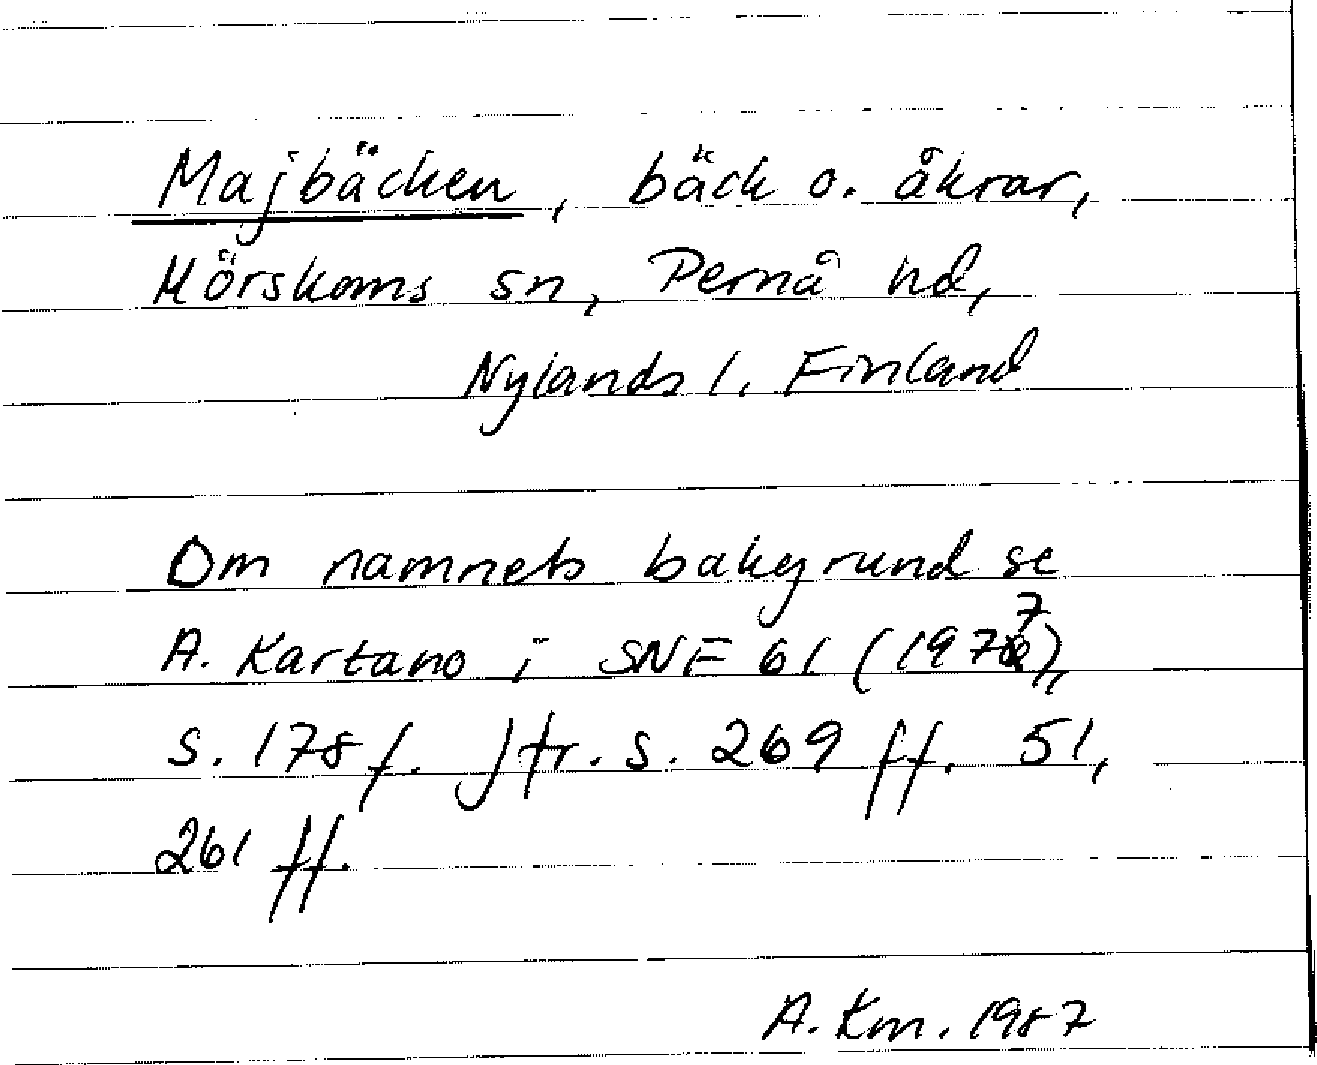 Majbäcken, bäck o. åkrar,
Mörskoms sn, Pernå hd,
Nylands l. Finland
Om namnets bakgrund se
A. Kartano i SNF 61 (1977),
s. 178 f. Jfr. s. 269 ff. 51,
261 ff.
A. Km. 1987